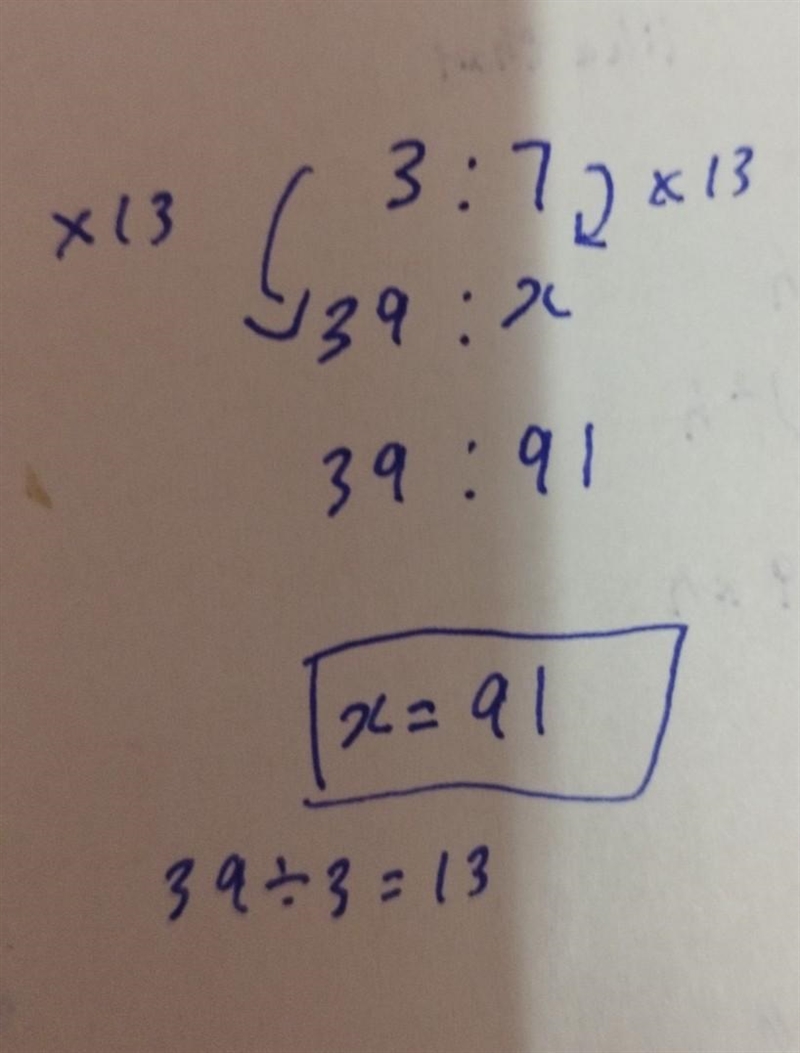 ×13 3 : 7 ×13
39 : x
39 : 91
x = 91
39 ÷ 3 = 13